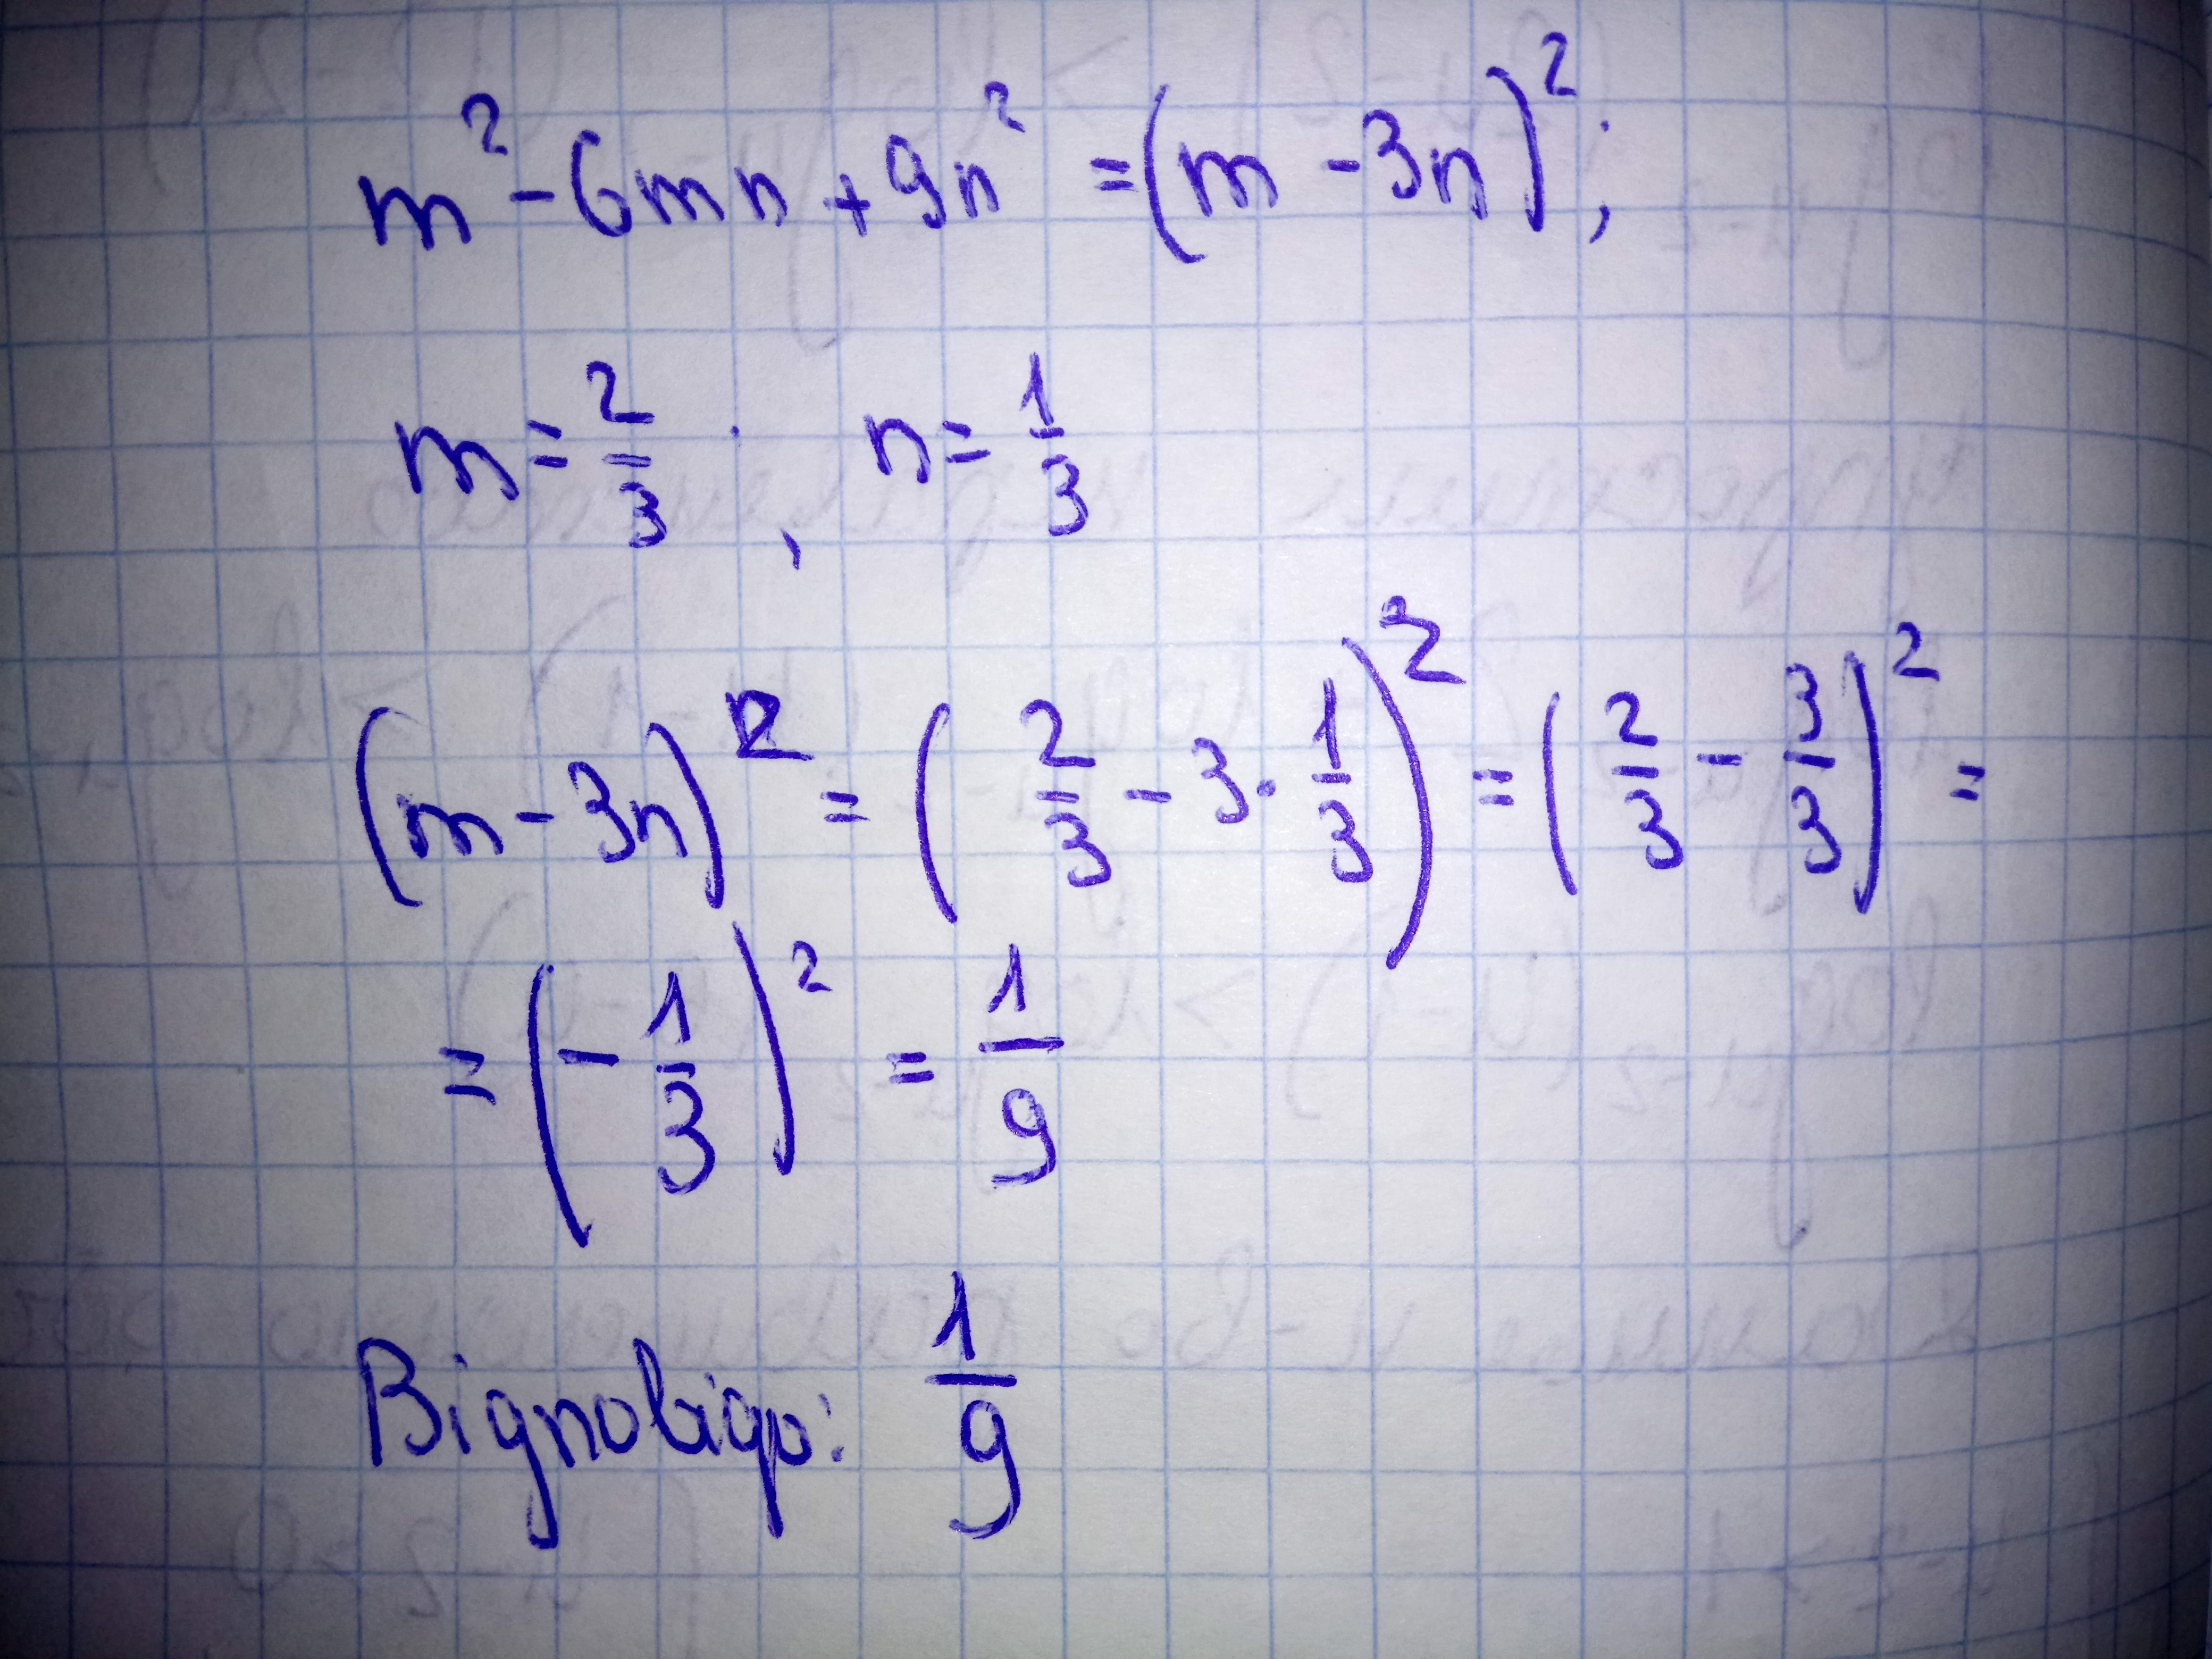 m² - 6mn + 9n² = (m - 3n)²;
m = 2/3; n = 1/3
(m - 3n)² = (2/3 - 3 · 1/3)² = (2/3 - 3/3)² =
= (- 1/3)² = 1/9
Відповідь: 1/9